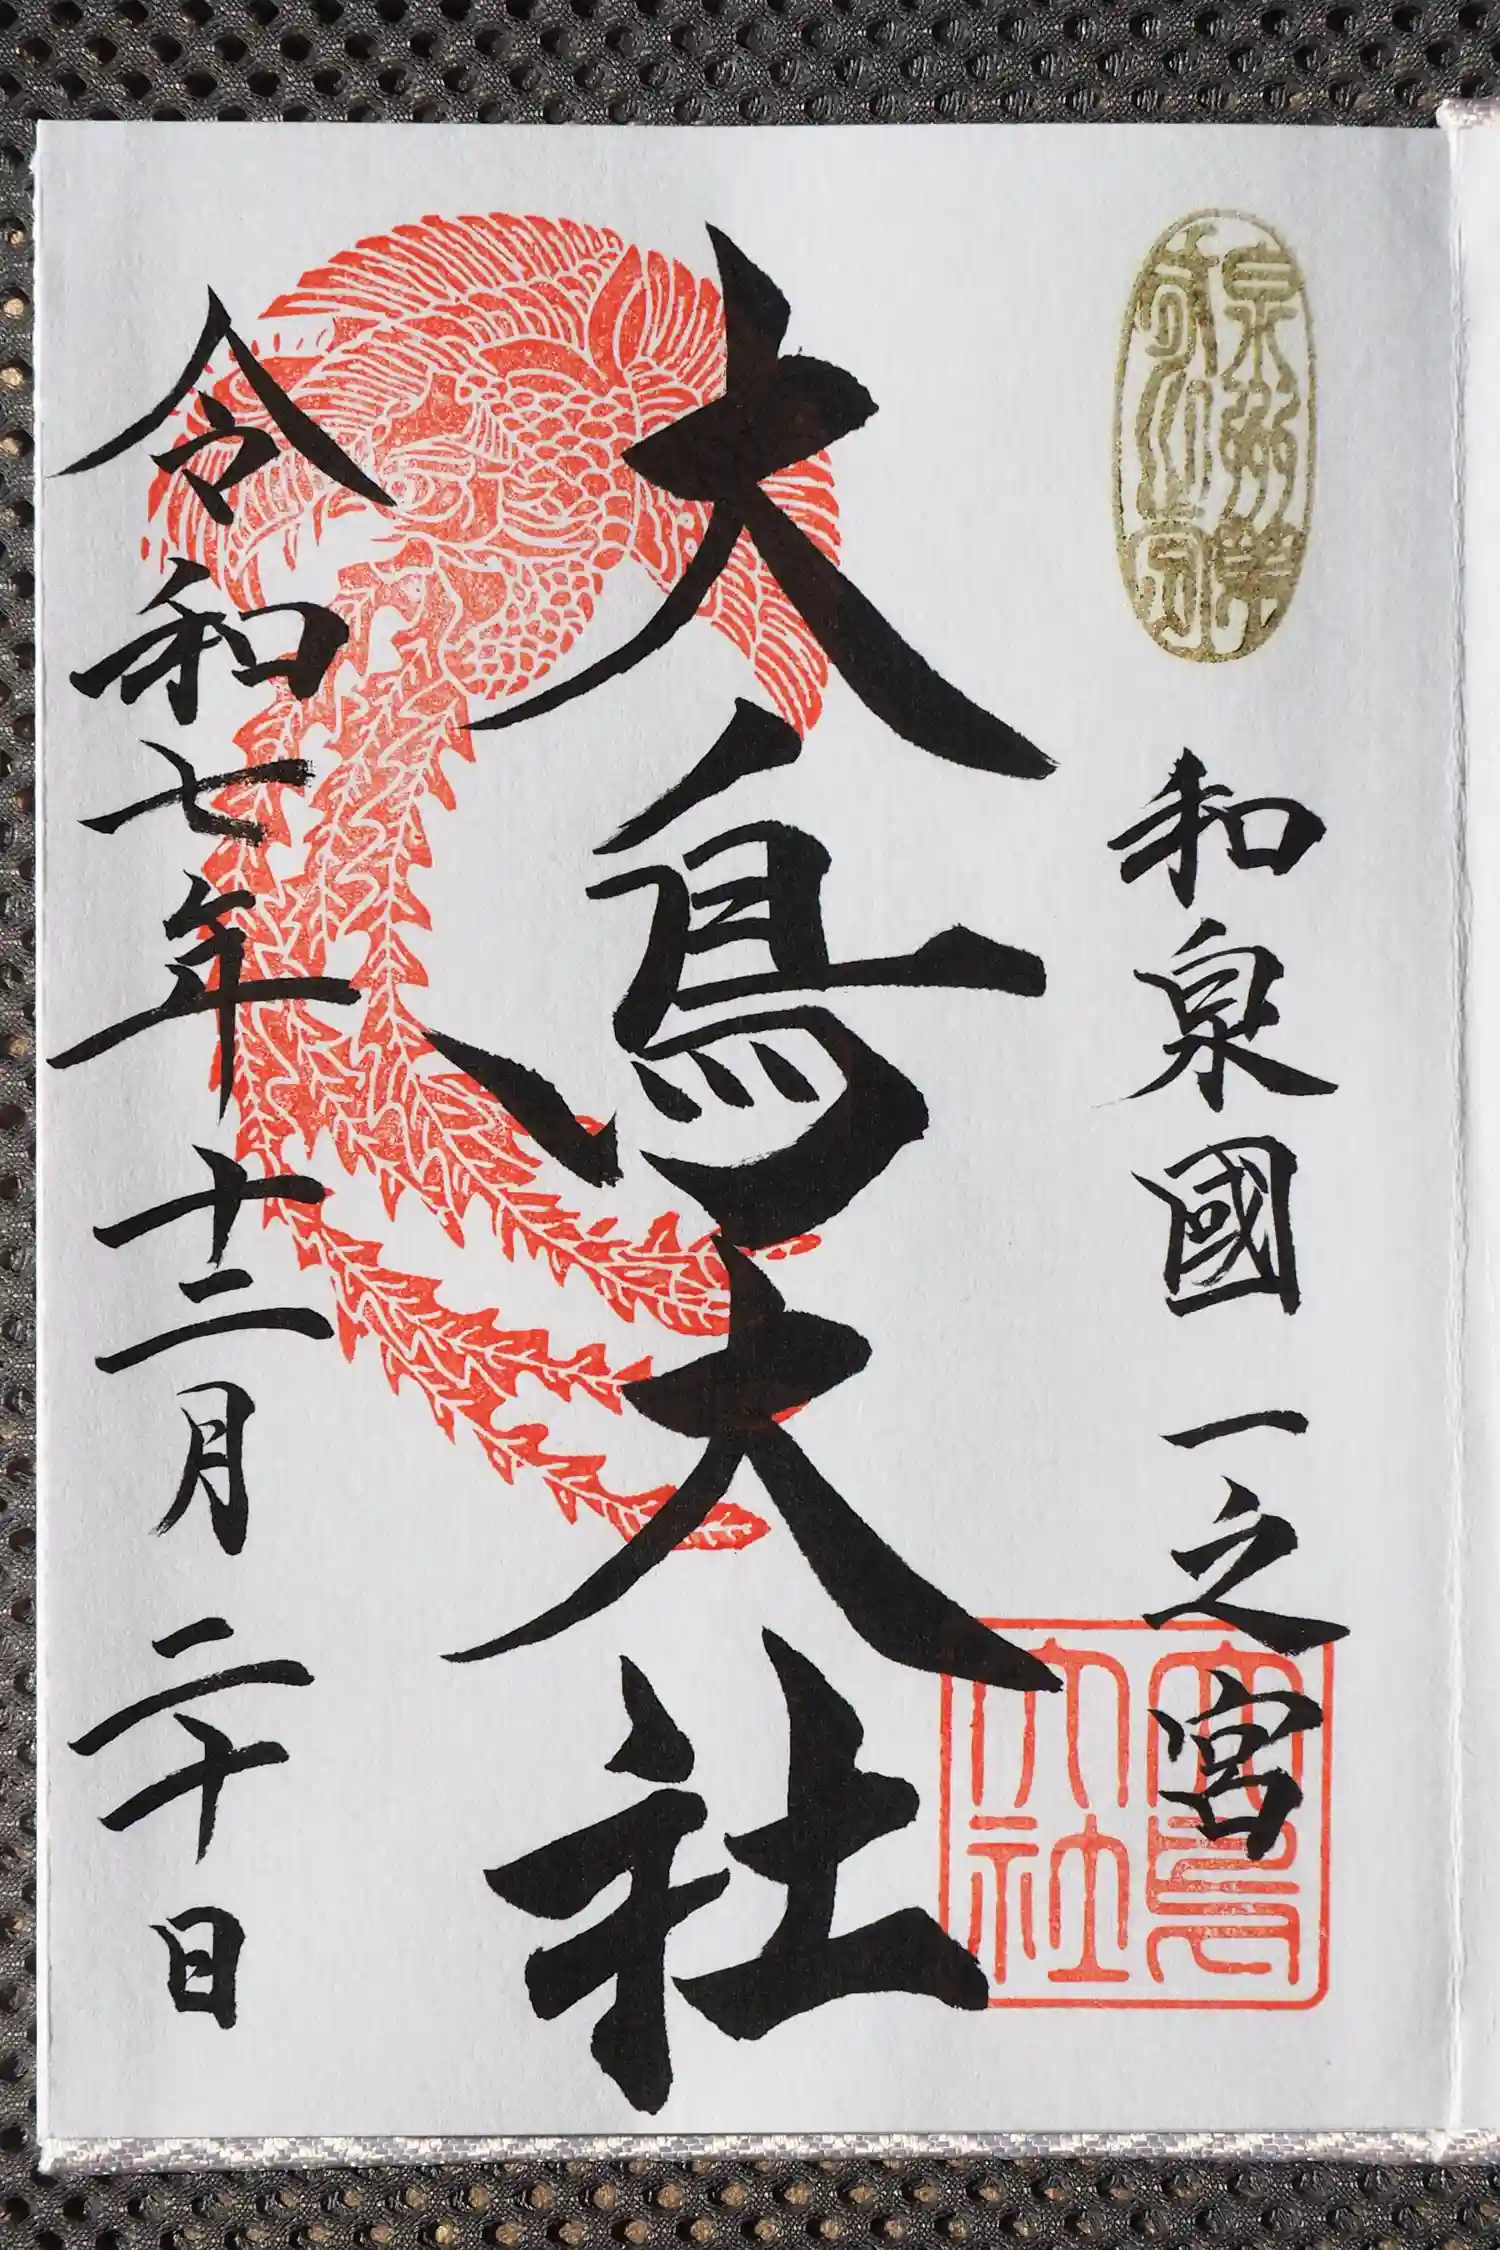 和泉國一之宮
大鳥大社
大鳥大社
令和七年十二月二十日